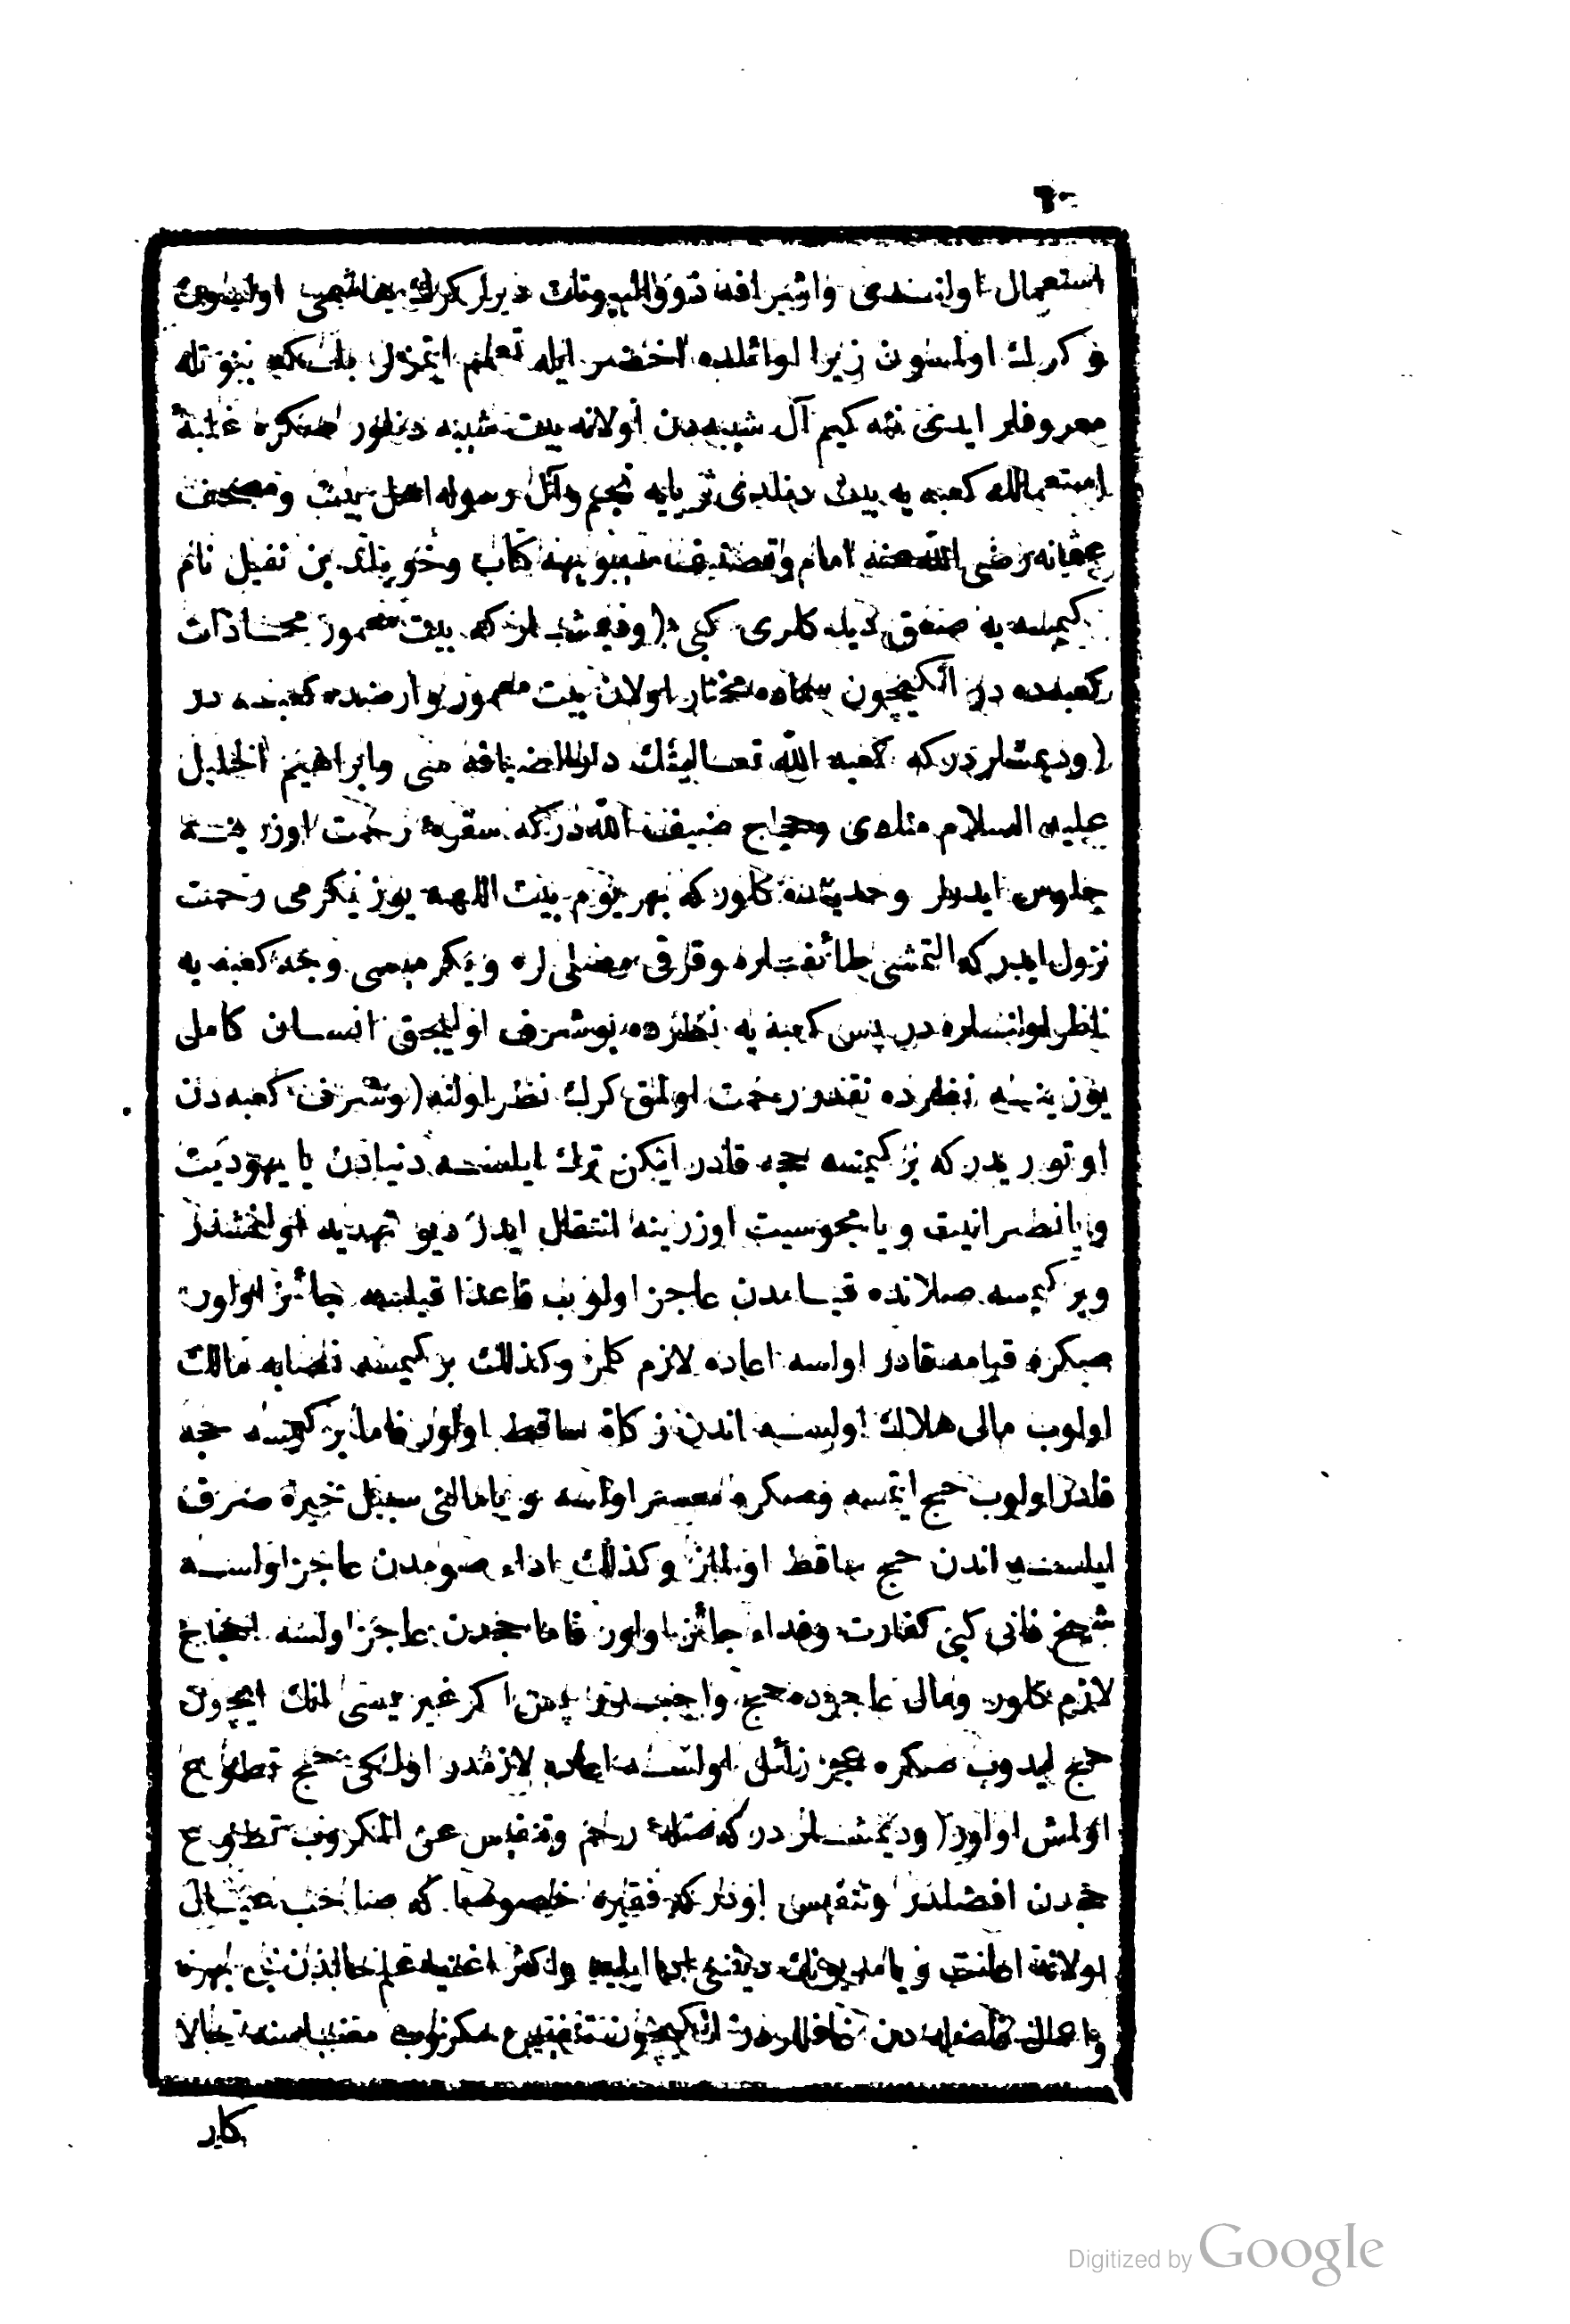 ٦٠
استعمال اولندی واشرافه ذوو البیوتات دیرلر کرك هاشمی اولسون
و کرك اولمسون زیرا لوائلده اخضر ایله تعلم ایتمزلر بلکه ببوتله
معروفلر ایدی نته کیم آل شیبه دن اولانه بیت شیبه دنلور صکره غلبۀ
استعمالله کعبه یه بیت دنلدی ثریایه نجم وآل رسوله اهل بیت ومصحف
عثمانه رضی الله عنه امام وتصنیف سیبویهه کتاب وخویلد بن نفیل نام
کیمسه یه صعق دیدکلری کبی (ودیمشلر که بیت معمور محاذات
کعبه ده در انکیچون سماده مختار اولان بیت معمور وارضده کعبه در
(ودیمشلردر که کعبه الله تعالینك دار الضیافه سی وابراهیم الخلیل
علیه السلام منادی وحجاج ضیف الله در که سفرۀ رحمت اوزرینه
جلوس ایدرلر وحدیثده کلور که بهر یوم بیت اللهه یوز یکرمی رحمت
نزول ایدر که التمشی طائفلره وقرقی مصلی لره ویکرمیسی وجه کعبه یه
ناظر اولنلره در پس کعبه یه نظرده بو شرف اولیجق انسان کامل
یوزینه نظرده نقدر رحمت اولمق کرك نظر اولنه (وشرف کعبه دن
اوتوریدر که بر کیمسه حجه قادر ایکن ترك ایلسه دنیادن یا یهودیت
ویا نصرانیت ویا مجوسیت اوزرینه انتقال ایدر دیو تهدید اولنمشدر
وبر کیمسه صلاتده قیامدن عاجز اولوب قاعدا قیلسه جائز اولور
صکره قیامه قادر اولسه اعاده لازم کلمز وکذلك بر کیمسه نصابه مالك
اولوب مالی هلاك اولسه اندن زکاة ساقط اولور فاما بر کیمسه حجه
قادر اولوب حج ایتمسه وصکره معسر اولسه ویا مالنی سبیل خیره صرف
ایلسه اندن حج ساقط اولماز وکذلك اداء صومدن عاجز اولسه
شیخ فانی کبی کفارت وفداء جائز اولور فاما حجدن عاجز اولسه احجاج
لازم کلور ومال عاجزده حج واجبدر پس اکر غیریسی انك ایچون
حج ایدوب صکره عجز زائل اولسه اعاده لازمدر اولکی حج تطوع
اولمش اولور (ودیمشلردر که صلۀ رحم وتنفیس عن المکروب تطوع
حجدن افضلدر وتنفیس اودر که فقیره خصوصا که صاحب عیال
اولانه اعانت ویا مدیونك دینی ادا ایلیه واکثر اغنیا علم حالدن بی بهره
واعمال فاضله دن غافللردر انکیچون تنفیس مکروب مقابلسنده حالا
کار